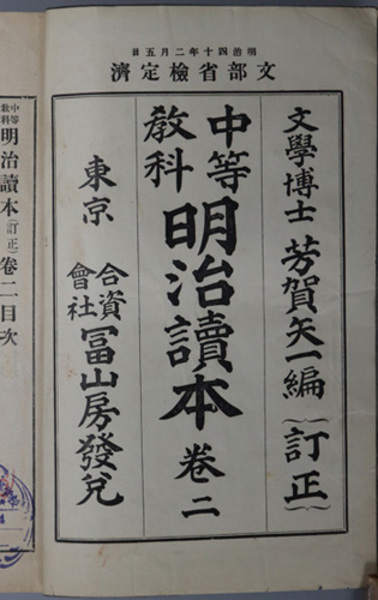 明治四十年二月五日
文部省檢定濟
文學博士 芳賀矢一編 (訂正)
中等
教科
明治讀本 卷二
東京
合資
會社
冨山房發兌
中等
教科
明治讀本(訂正)卷二目次